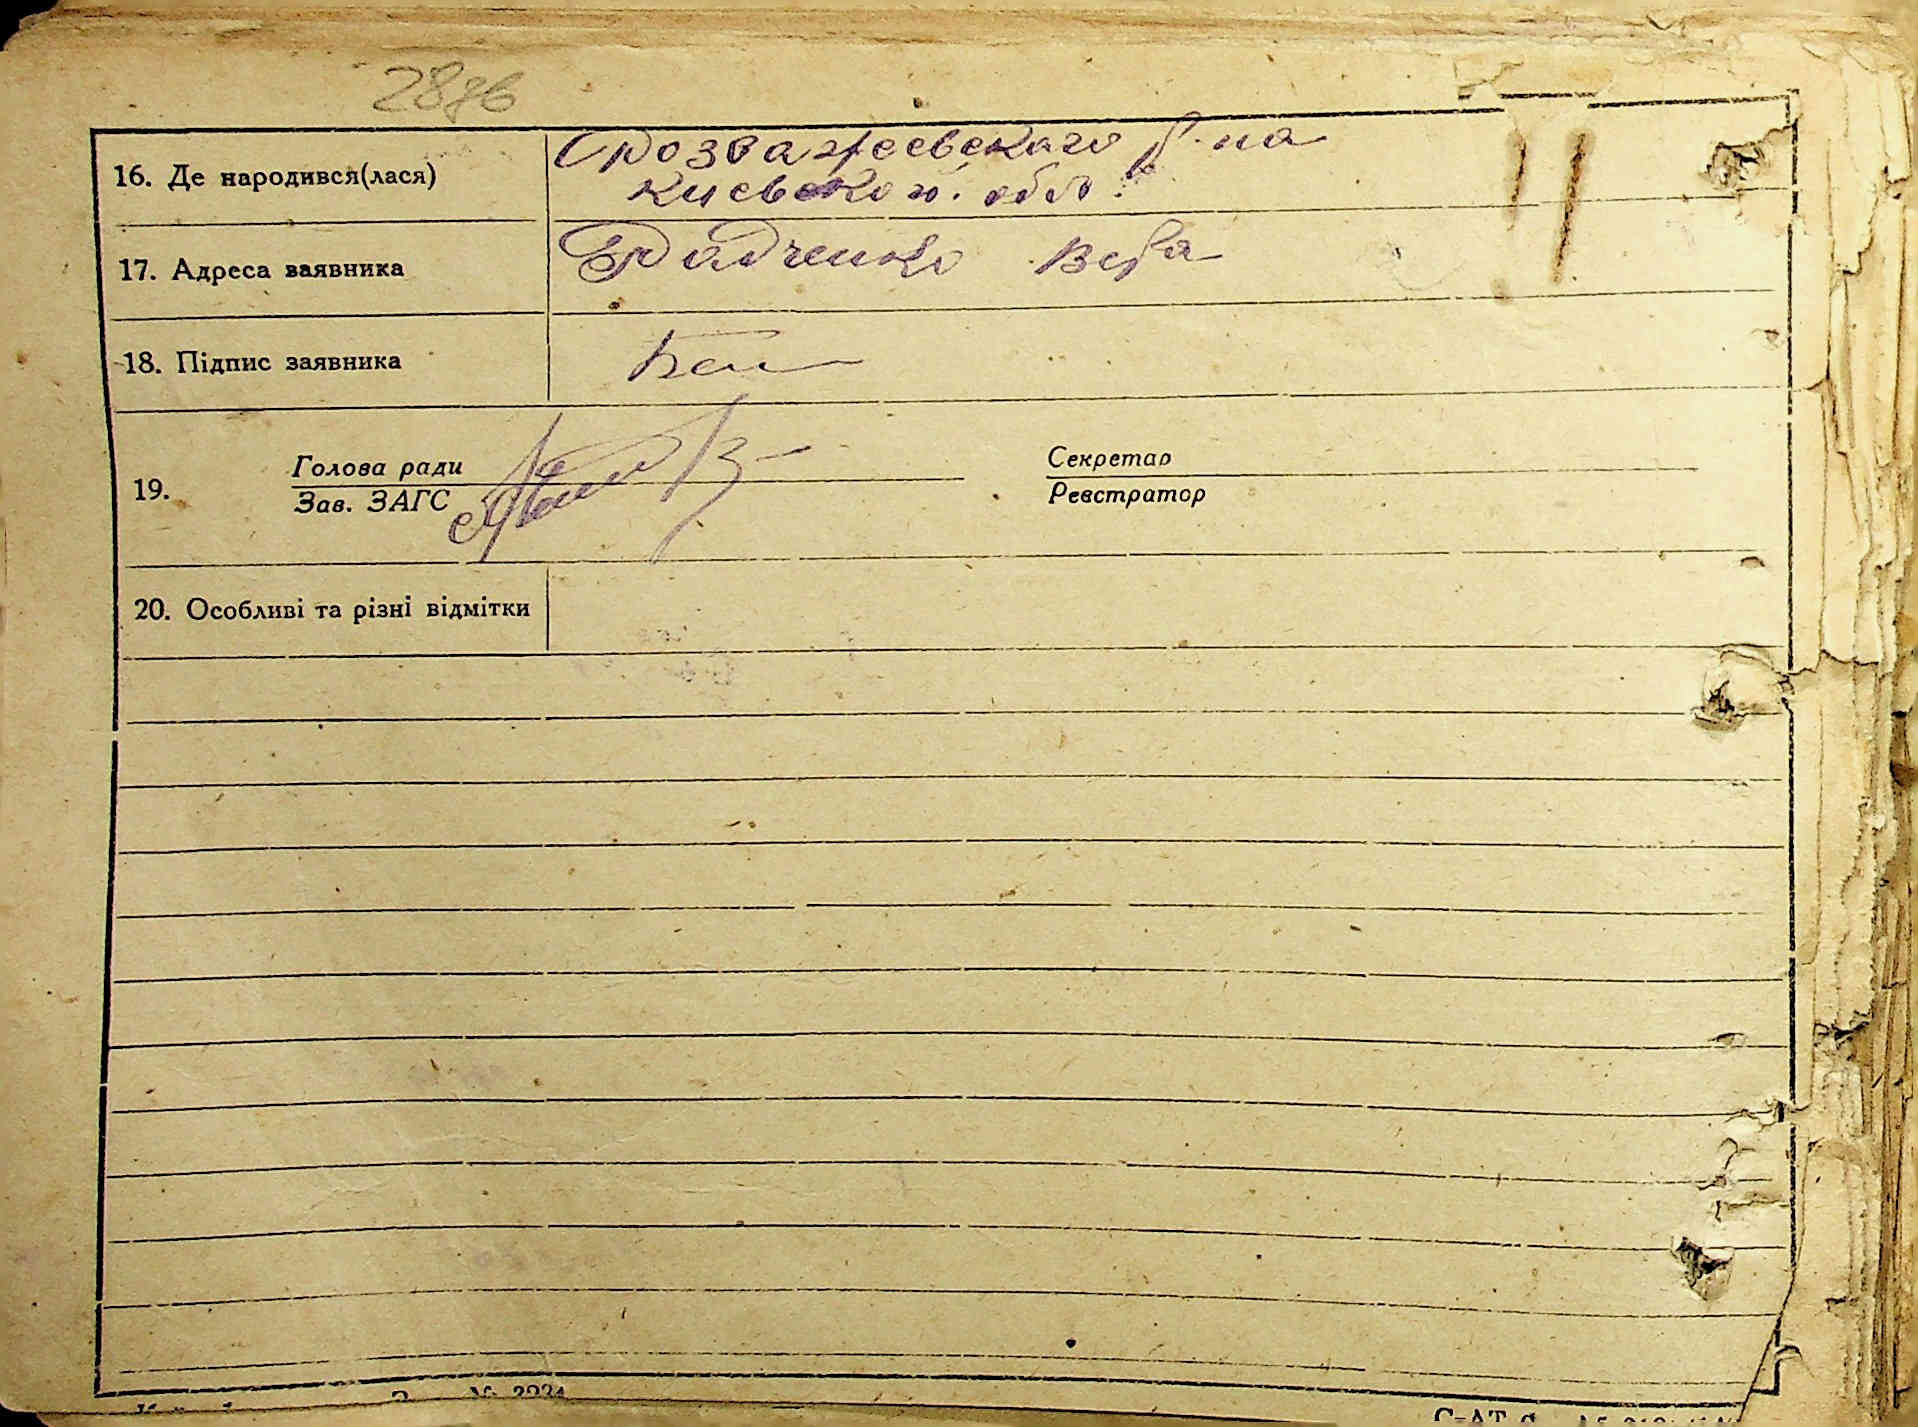 287б
16. Де народився(лася)
Розважеевского р-на
Киевской. обл.
17. Адреса заявника
Радченко Вера
18. Підпис заявника
19.
Голова ради
Зав. ЗАГС
Секретар
Реєстратор
20. Особливі та різні відмітки